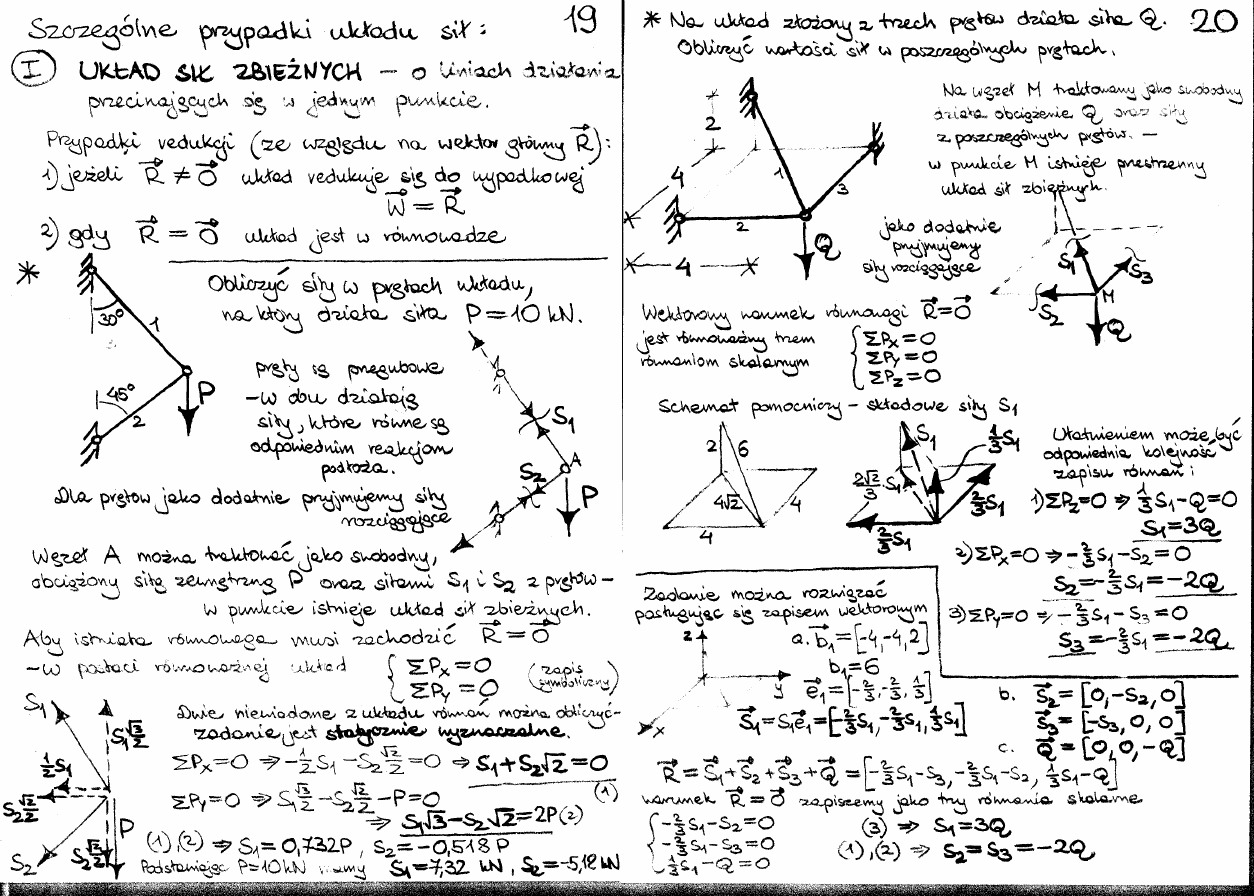 Szczególne przypadki układu sił: 19
I UKŁAD SIŁ ZBIEŻNYCH – o liniach działania
przecinających się w jednym punkcie.
Przypadki redukcji (ze względu na wektor główny R):
1) jeżeli R ≠ 0 układ redukuje się do wypadkowej
W = R
2) gdy R = 0 układ jest w równowadze
* Obliczyć siły w prętach układu,
na który działa siła P = 10 kN.
30°
1
45°
2
P
pręty są przegubowe
– w obu działają
siły, które równe są
odpowiednim reakcjom
podłoża.
S1
A
S2
P
Dla prętów jako dodatnie przyjmujemy siły
rozciągające
Węzeł A można traktować jako swobodny,
obciążony siłą zewnętrzną P oraz siłami S1 i S2 z prętów –
w punkcie istnieje układ sił zbieżnych.
Aby istniała równowaga musi zachodzić R = 0
– w postaci równoważnej układ { ΣPx = 0 (zapis
ΣPy = 0 symboliczny)
S1
S1 √3/2
1/2 S1
S2 √2/2
S2
S2 √2/2
P
Dwie niewiadome z układu równań można obliczyć –
zadanie jest statycznie wyznaczalne.
ΣPx=0 ⇒ -1/2 S1 - S2 √2/2 = 0 ⇒ S1 + S2√2 = 0
(1)
ΣPy=0 ⇒ S1 √3/2 - S2 √2/2 - P = 0
⇒ S1√3 - S2√2 = 2P (2)
(1),(2) ⇒ S1 = 0,732P, S2 = -0,518P
Podstawiając P=10kN mamy S1 = 7,32 kN, S2 = -5,18 kN
* Na układ złożony z trzech prętów działa siła Q. 20
Obliczyć wartości sił w poszczególnych prętach.
2
4
4
1
2
3
Q
Na węzeł M traktowany jako swobodny
działa obciążenie Q oraz siły
z poszczególnych prętów. –
w punkcie M istnieje przestrzenny
układ sił zbieżnych.
jako dodatnie
przyjmujemy
siły rozciągające
S1
S3
S2
M
Q
Wektorowy warunek równowagi R = 0
jest równoważny trzem
równaniom skalarnym
{ ΣPx = 0
ΣPy = 0
ΣPz = 0
Schemat pomocniczy – składowe siły S1
2
6
4√2
4
4
S1
1/3 S1
2√2/3 S1
2/3 S1
2/3 S1
Ułatwieniem może być
odpowiednia kolejność
zapisu równań:
1) ΣPz=0 ⇒ 1/3 S1 - Q = 0
S1 = 3Q
2) ΣPx=0 ⇒ -2/3 S1 - S2 = 0
S2 = -2/3 S1 = -2Q
3) ΣPy=0 ⇒ -2/3 S1 - S3 = 0
S3 = -2/3 S1 = -2Q
Zadanie można rozwiązać
posługując się zapisem wektorowym
z
y
x
a. b1 = [-4,-4,2]
b1 = 6
e1 = [-2/3, -2/3, 1/3]
S1 = S1e1 = [-2/3 S1, -2/3 S1, 1/3 S1]
b. S2 = [0, -S2, 0]
S3 = [-S3, 0, 0]
c. Q = [0, 0, -Q]
R = S1 + S2 + S3 + Q = [-2/3 S1 - S3, -2/3 S1 - S2, 1/3 S1 - Q]
warunek R = 0 zapiszemy jako trzy równania skalarne
{ -2/3 S1 - S2 = 0
-2/3 S1 - S3 = 0
1/3 S1 - Q = 0
(3) ⇒ S1 = 3Q
(1),(2) ⇒ S2 = S3 = -2Q